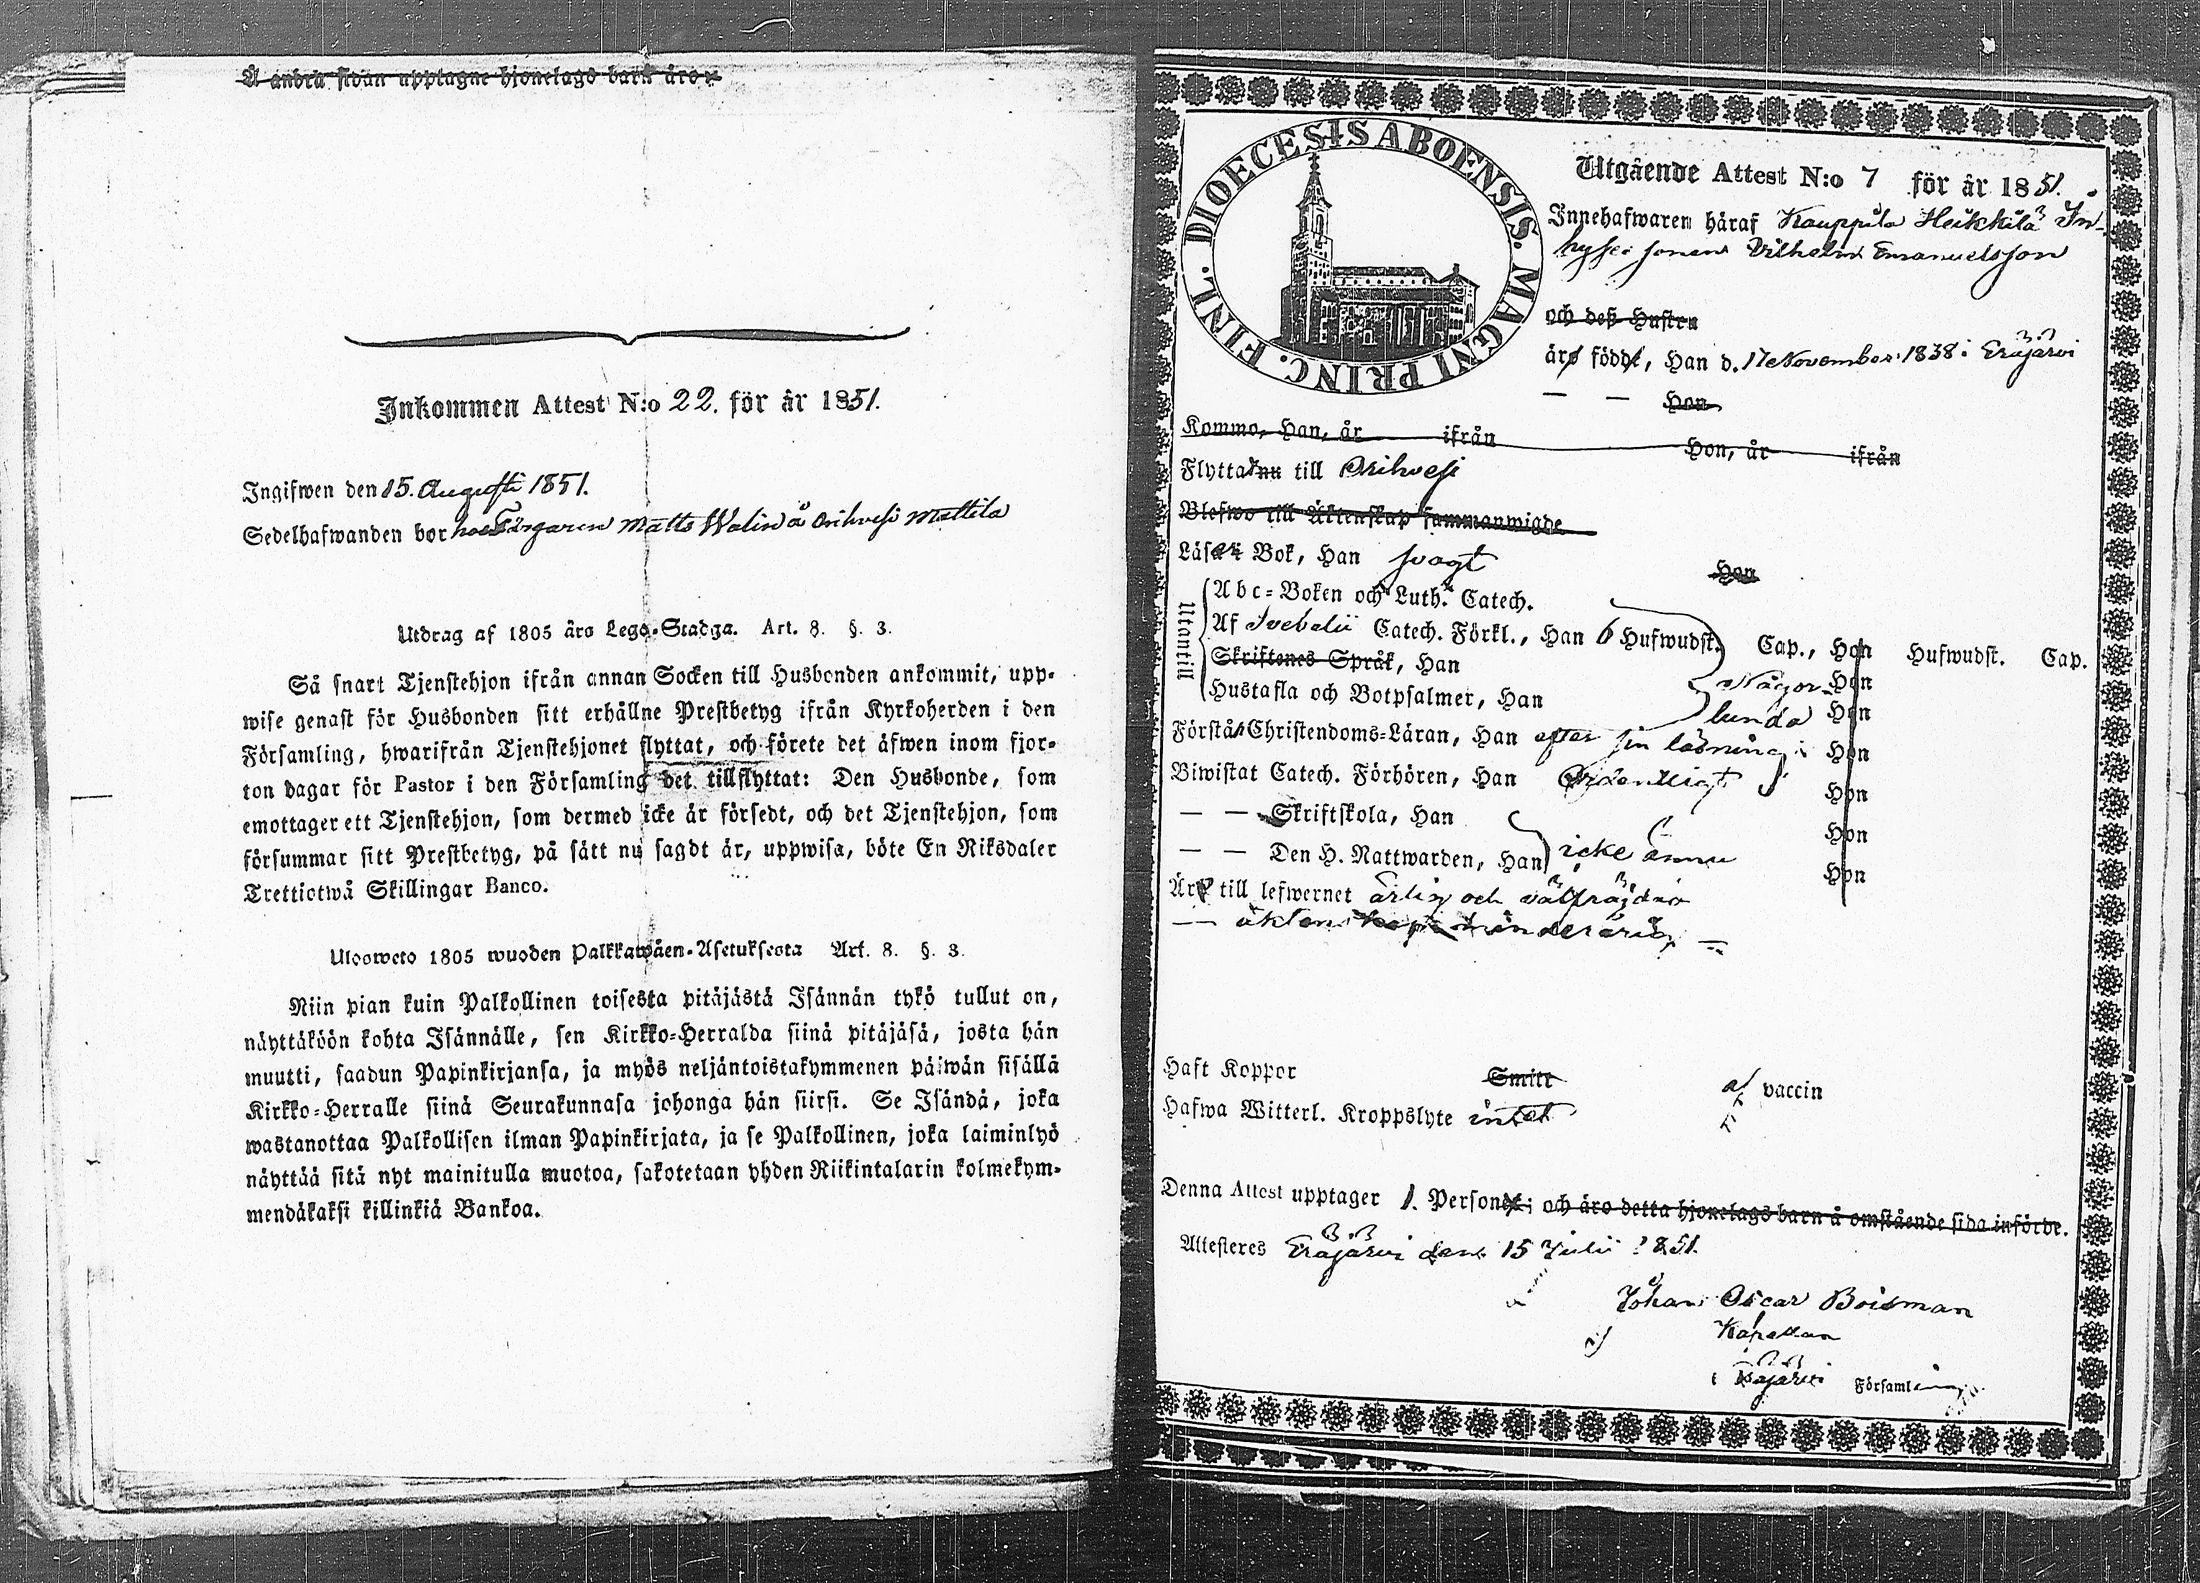 Å andra sidan upptagne hjonelags barn äro:
Inkommen Attest N:o 22. för år 1851.
Ingifwen den 15. Augusti 1851.
Sedelhafwanden bor hos Färgaren Matts Walin å Orihvesi Mattila
Utdrag af 1805 års Lego-Stadga. Art. 8. §. 3.
Så snart Tjenstehjon ifrån annan Socken till Husbonden ankommit, upp-
wise genast för Husbonden sitt erhållne Prestbetyg ifrån Kyrkoherden i den
Församling, hwarifrån Tjenstehjonet flyttat, och förete det äfwen inom fjor-
ton dagar för Pastor i den Församling det tillflyttat: Den Husbonde, som
emottager ett Tjenstehjon, som dermed icke är försedt, och det Tjenstehjon, som
försummar sitt Prestbetyg, på sätt nu sagdt är, uppwisa, böte En Riksdaler
Trettiotwå Skillingar Banco.
Ulosweto 1805 wuoden Palkkawäen-Asetuksesta Art. 8. §. 3.
Niin pian kuin Palkollinen toisesta pitäjästä Isännän tykö tullut on,
näyttäköön kohta Isännälle, sen Kirkko-Herralda siinä pitäjäsä, josta hän
muutti, saadun Papinkirjansa, ja myös neljäntoistakymmenen päiwän sisällä
Kirkko-Herralle siinä Seurakunnasa johonga hän siirsi. Se Isändä, joka
wastanottaa Palkollisen ilman Papinkirjata, ja se Palkollinen, joka laiminlyö
näyttää sitä nyt mainitulla muotoa, sakotetaan yhden Riikintalarin kolmekym-
mendäkaksi killinkiä Bankoa.
DIOECESIS ABOENSIS. MAGNI PRINC. FINL.
Utgående Attest N:o 7 för år 1851.
Innehafwaren häraf Kauppila Heikkilä In-
hyses sonen Vilhelm Emanuelsson
och deß Hustru
äro födde, Han d. 17 November 1838 i Eräjärvi
— — Hon
Kommo, Han, år ifrån Hon, år ifrån
Flytta nu till Orihvesi
Blefwo till Äktenskap sammanwigde
Läsa i Bok, Han svagt Hon
Utantill
Abc-Boken och Luth. Catech.
Af Svebelii Catech. Förkl., Han 6 Hufwudst. Cap., Hon Hufwudst. Cap.
Skriftenes Språk, Han Någor- Hon
Hustafla och Botpsalmer, Han lunda Hon
Förstå Christendoms-Läran, Han efter sin läsning Hon
Biwistat Catech. Förhören, Han Ordentligt Hon
— — Skriftskola, Han Hon
— — Den H. Nattwarden, Han icke ännu Hon
Är till lefwernet ärlig och välfräjdad
— äktenskap minderårig —
Haft Koppor Smitt af vaccin
Hafwa Witterl. Kroppslyte intet
Denna Attest upptager 1. Person; och äro detta hjonelags barn å omstående sida införde.
Attesteres Eräjärvi den 15 Julii 1851.
Johan Oscar Boisman
Kapellan
i Eräjärvi Församling